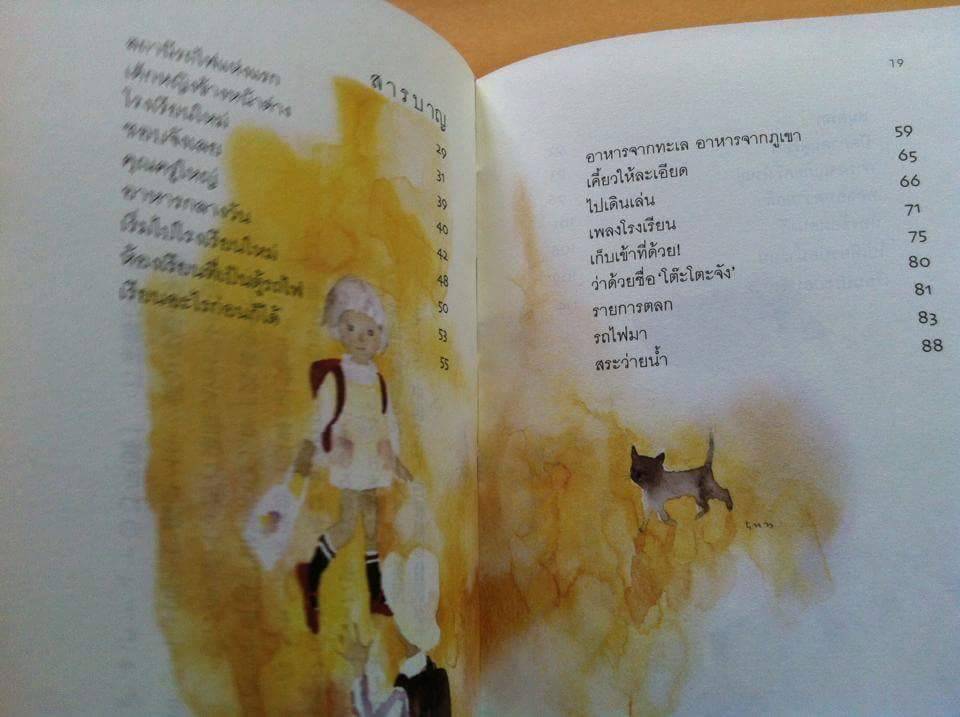 สารบาญ
สถานีรถไฟแห่งแรก 29
เด็กหญิงข้างหน้าต่าง 31
โรงเรียนใหม่ 39
ชอบจังเลย 40
คุณครูใหญ่ 42
อาหารกลางวัน 48
เริ่มไปโรงเรียนใหม่ 50
ห้องเรียนที่เป็นตู้รถไฟ 53
เรียนอะไรก่อนก็ได้ 55
19
อาหารจากทะเล อาหารจากภูเขา 59
เคี้ยวให้ละเอียด 65
ไปเดินเล่น 66
เพลงโรงเรียน 71
เก็บเข้าที่ด้วย! 75
ว่าด้วยชื่อ‘โต๊ะโตะจัง’ 80
รายการตลก 81
รถไฟมา 83
สระว่ายน้ำ 88